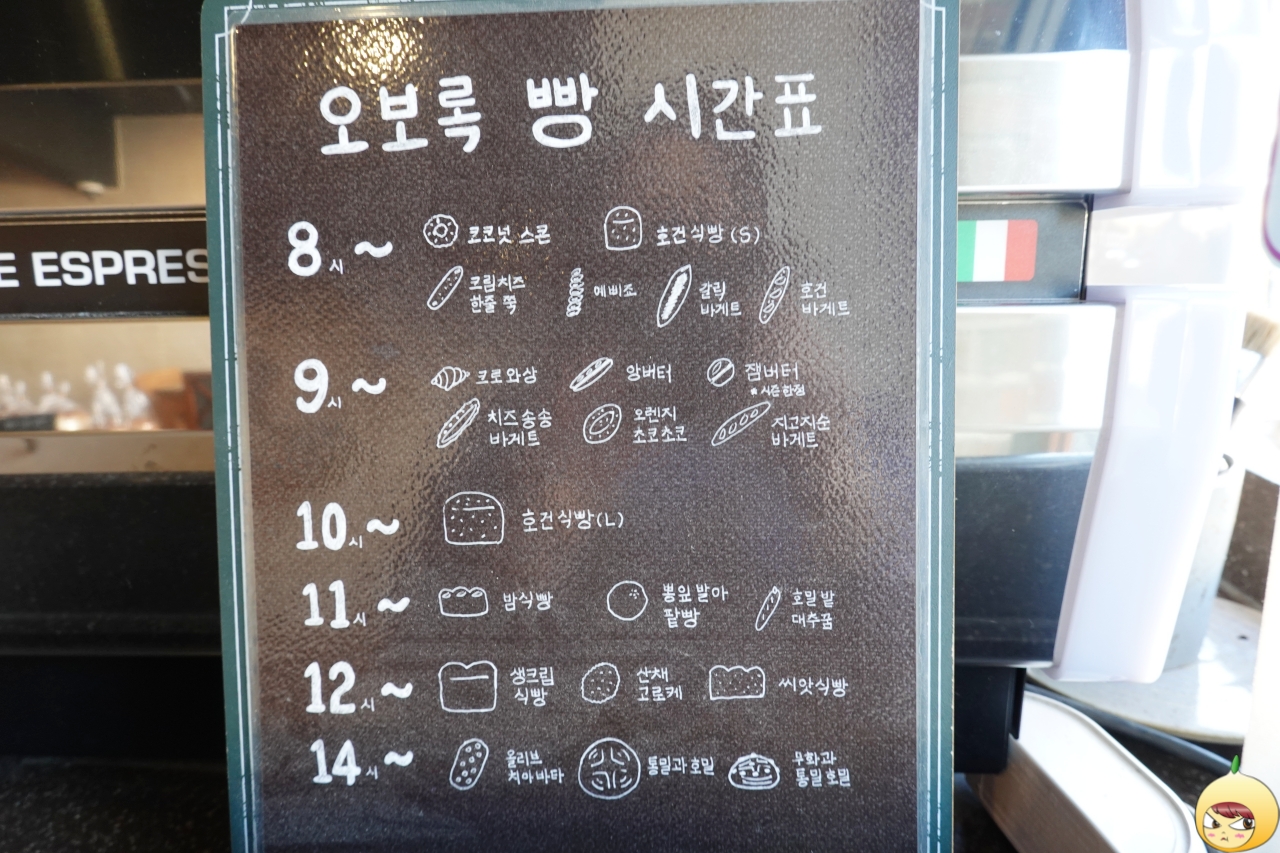 오보록 빵 시간표
E ESPRES
8시~ 코코넛 스콘 호건식빵 (S)
크림치즈 한줄 쭉 에삐죠 갈릭 바게트 호건 바게트
9시~ 크로와상 앙버터 잼버터 *시즌한정
치즈송송 바게트 오렌지 쵸코쵸코 지고지순 바게트
10시~ 호건식빵(L)
11시~ 밤식빵 뽕잎발아 팥빵 호밀밭 대추꿈
12시~ 생크림 식빵 산채 고로케 씨앗식빵
14시~ 올리브 치아바타 통밀과 호밀 무화과 통밀호밀